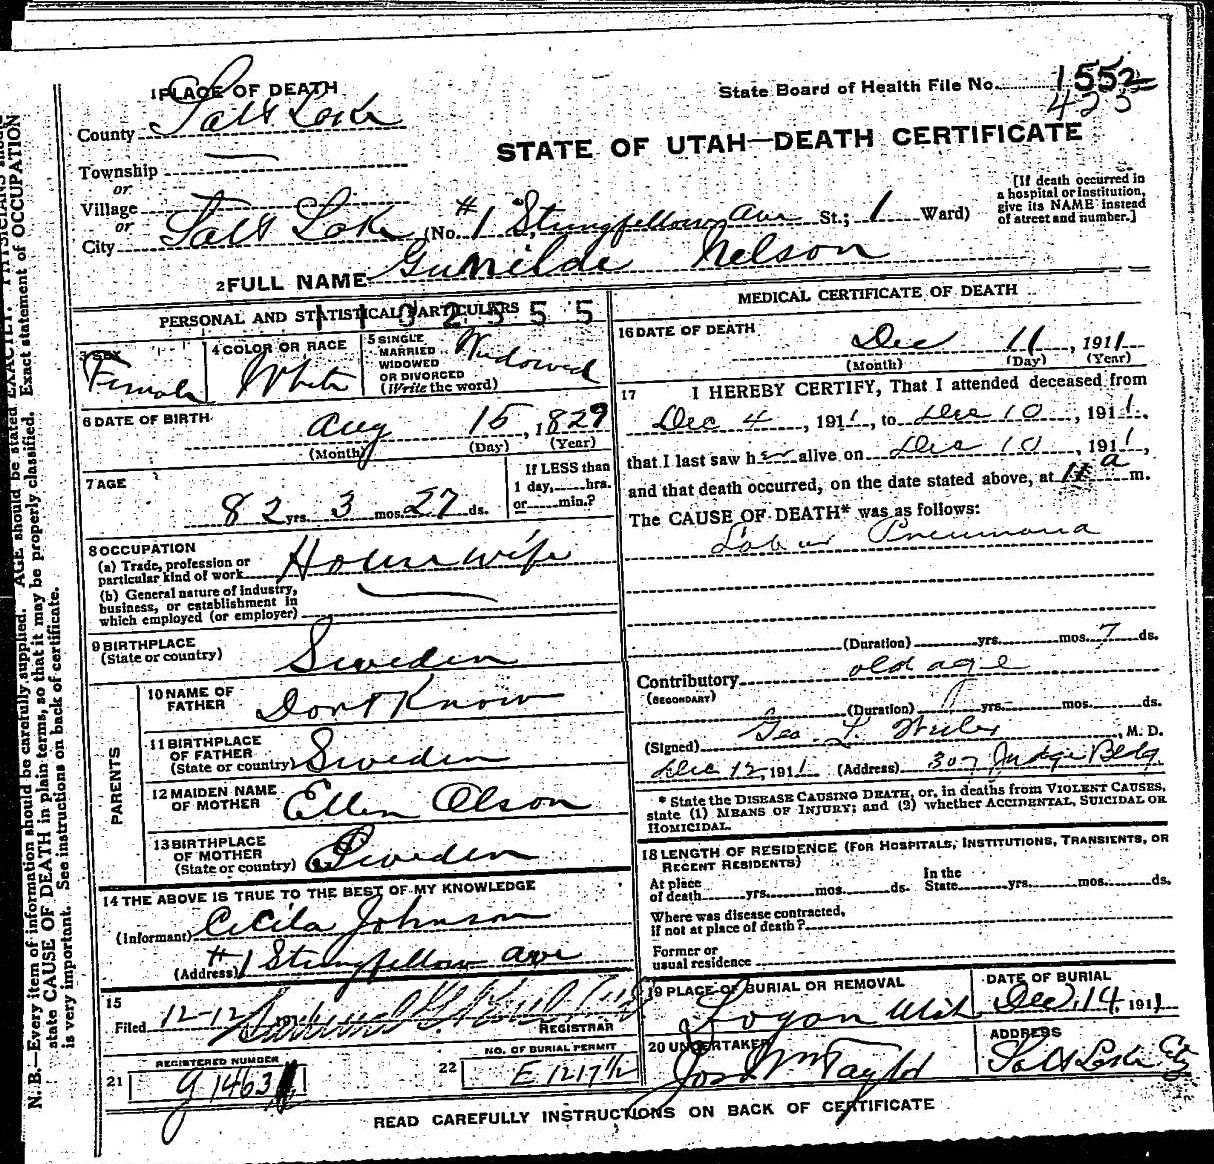 1 PLACE OF DEATH
State Board of Health File No. 1552
425
County Salt Lake
STATE OF UTAH—DEATH CERTIFICATE
Township
or
Village
or
City Salt Lake (No. #1 Stringfellow Ave St.; 1 Ward)
[If death occurred in a hospital or institution, give its NAME instead of street and number.]
2 FULL NAME Gunilde Nelson
PERSONAL AND STATISTICAL PARTICULARS
1102555
3 SEX
Female
4 COLOR OR RACE
White
5 SINGLE
MARRIED
WIDOWED
OR DIVORCED
(Write the word)
Widowed
6 DATE OF BIRTH
Aug 15, 1829
(Month) (Day) (Year)
7 AGE
82 yrs. 3 mos. 27 ds.
If LESS than
1 day, hrs.
or min.?
8 OCCUPATION
(a) Trade, profession or
particular kind of work Housewife
(b) General nature of industry,
business, or establishment in
which employed (or employer)
9 BIRTHPLACE
(State or country) Sweden
PARENTS
10 NAME OF
FATHER Dont Know
11 BIRTHPLACE
OF FATHER
(State or country) Sweden
12 MAIDEN NAME
OF MOTHER Ellen Olson
13 BIRTHPLACE
OF MOTHER
(State or country) Sweden
14 THE ABOVE IS TRUE TO THE BEST OF MY KNOWLEDGE
(Informant) Cecila Johnson
(Address) #1 Stringfellow ave
15
Filed 12-12, 191
REGISTRAR
REGISTERED NUMBER
21 g 1463
22 NO. OF BURIAL PERMIT
E 1217½
MEDICAL CERTIFICATE OF DEATH
16 DATE OF DEATH
Dec 11, 1911
(Month) (Day) (Year)
17 I HEREBY CERTIFY, That I attended deceased from
Dec 4, 1911, to Dec 10, 1911,
that I last saw her alive on Dec 10, 1911,
and that death occurred, on the date stated above, at 11 a m.
The CAUSE OF DEATH* was as follows:
Lobar Pneumonia
(Duration) yrs. mos. 7 ds.
Contributory old age
(SECONDARY)
(Duration) yrs. mos. ds.
(Signed) Geo. L. , M. D.
Dec 12, 1911 (Address) 307 Judge Bldg.
* State the DISEASE CAUSING DEATH, or, in deaths from VIOLENT CAUSES,
state (1) MEANS OF INJURY; and (2) whether ACCIDENTAL, SUICIDAL OR
HOMICIDAL.
18 LENGTH OF RESIDENCE (FOR HOSPITALS, INSTITUTIONS, TRANSIENTS, OR
RECENT RESIDENTS)
At place
of death yrs. mos. ds. In the
State yrs. mos. ds.
Where was disease contracted,
if not at place of death?
Former or
usual residence
19 PLACE OF BURIAL OR REMOVAL
Logan Utah
DATE OF BURIAL
Dec 14, 1911
20 UNDERTAKER
Jos Wm Taylor
ADDRESS
Salt Lake City
READ CAREFULLY INSTRUCTIONS ON BACK OF CERTIFICATE
N. B.—Every item of information should be carefully supplied. AGE should be stated EXACTLY. PHYSICIANS should
state CAUSE OF DEATH in plain terms, so that it may be properly classified. Exact statement of OCCUPATION
is very important. See instructions on back of certificate.